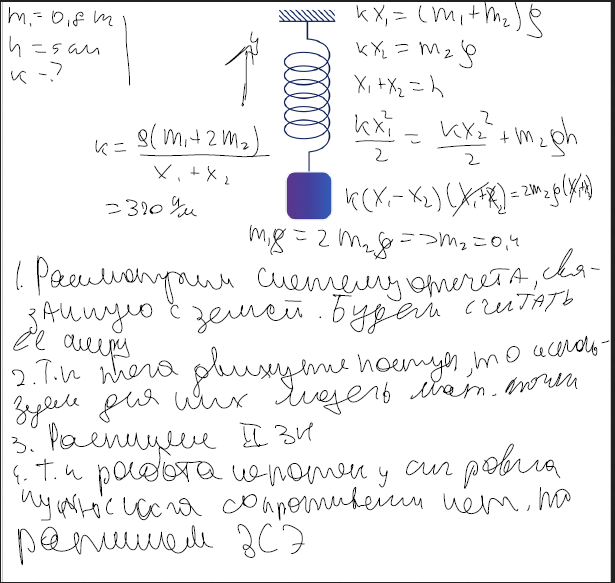 m₁ = 0,8 кг
h = 5 см
k - ?
y
kx₁ = (m₁ + m₂)g
kx₂ = m₂g
x₁ + x₂ = h
kx₁²/2 = kx₂²/2 + m₂gh
k = g(m₁ + 2m₂)/(x₁ + x₂)
k(x₁ - x₂)(x₁ + x₂) = 2m₂g(x₁ + x₂)
= 320 Н/м
m₁g = 2m₂g => m₂ = 0,4
1. Рассмотрим систему отсчета, свя-
занную с землей. Будем считать
ее
2. Т.к тела движутся поступ, то исполь-
зуем для них модель мат. точки
3. Распишем II ЗН
4. Т.к работа сил равна
нулю сопротивления нет, то
распишем ЗСЭ